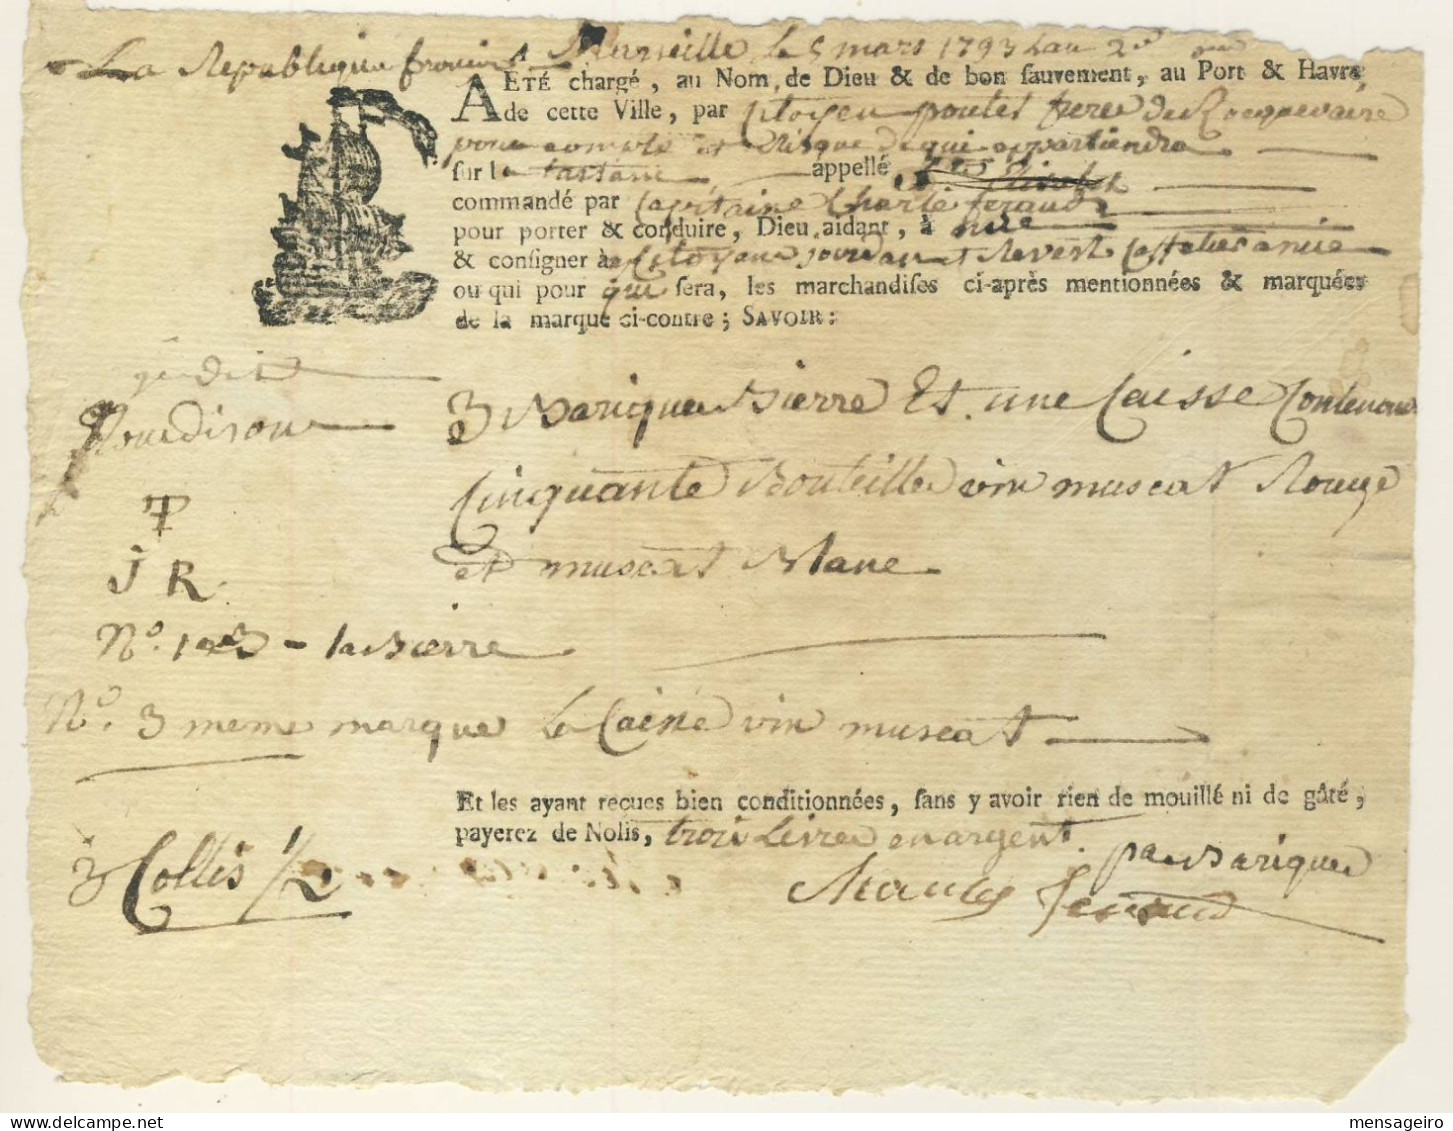 La République française A Marseille le 5 mars 1793 Lan 2e
A ÉTÉ chargé, au Nom, de Dieu & de bon sauvement, au Port & Havre
de cette Ville, par Citoyen poutet frere de Rocquevaire
pour compte et Risque de qui appartiendra
sur la tartane appellé
commandé par Capitaine Charle feraud
pour porter & conduire, Dieu aidant, à nice
& consigner à Citoyens jourdan et Revest a nice
ou qui pour qui sera, les marchandises ci-après mentionnées & marquées
de la marque ci-contre; SAVOIR:
3 Barique Bierre Et une Caisse Contenant
Cinquante Bouteilles vin muscat Rouge
et muscat Blanc
TP
J R
N.o 1 a 3 - la Bierre
N.o 3 meme marque La Caisse vin muscat
Et les ayant reçues bien conditionnées, sans y avoir rien de mouillé ni de gâté,
payerez de Nolis, trois Livre en argent. par Barique
3 Collis